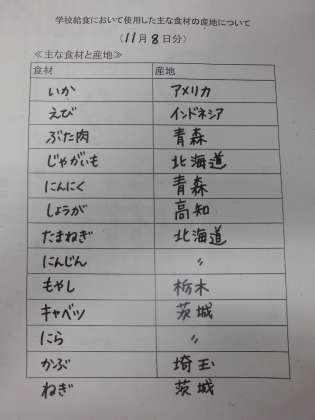 学校給食において使用した主な食材の産地について
(11月8日分)
≪主な食材と産地≫
食材 産地
いか アメリカ
えび インドネシア
ぶた肉 青森
じゃがいも 北海道
にんにく 青森
しょうが 高知
たまねぎ 北海道
にんじん 〃
もやし 栃木
キャベツ 茨城
にら 〃
かぶ 埼玉
ねぎ 茨城